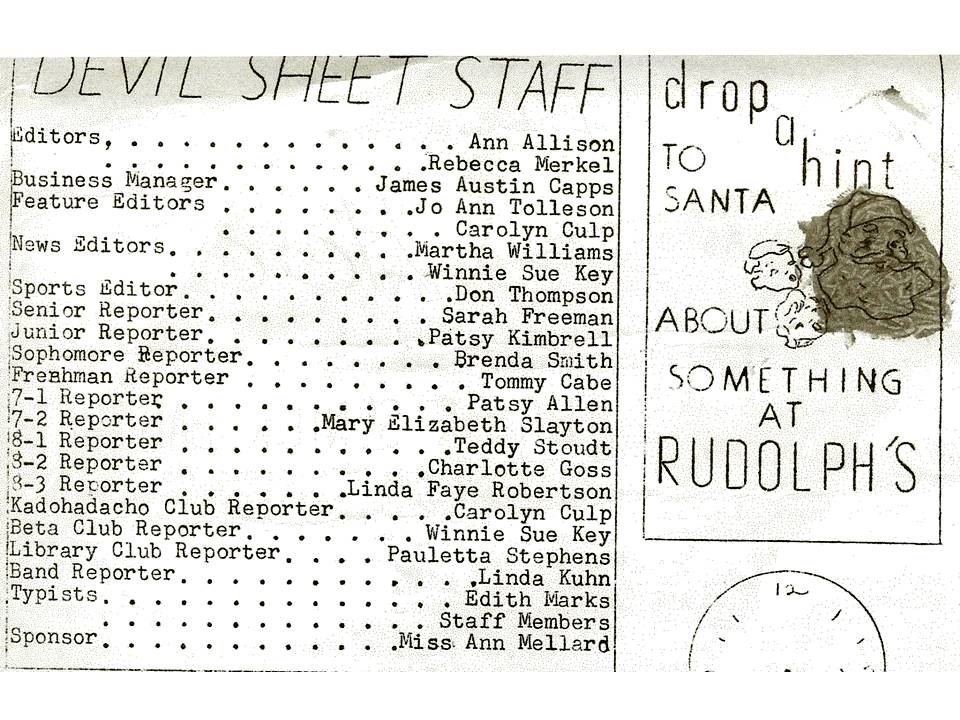 DEVIL SHEET STAFF
Editors, . . . . . . . . . . . . . . Ann Allison
. . . . . . . . . . . . .Rebecca Merkel
Business Manager. . . . . . James Austin Capps
Feature Editors . . . . . . . .Jo Ann Tolleson
. . . . . . . . . Carolyn Culp
News Editors. . . . . . . . . .Martha Williams
. . . . . . . . . . Winnie Sue Key
Sports Editor. . . . . . . . . . .Don Thompson
Senior Reporter. . . . . . . . . Sarah Freeman
Junior Reporter. . . . . . . . .Patsy Kimbrell
Sophomore Reporter. . . . . . . . Brenda Smith
Freshman Reporter . . . . . . . . . Tommy Cabe
7-1 Reporter . . . . . . . . . . . Patsy Allen
7-2 Reporter . . . . . .Mary Elizabeth Slayton
8-1 Reporter . . . . . . . . . . .Teddy Stoudt
8-2 Reporter . . . . . . . . . .Charlotte Goss
8-3 Reporter . . . . . . .Linda Faye Robertson
Kadohadacho Club Reporter. . . . .Carolyn Culp
Beta Club Reporter. . . . . . . Winnie Sue Key
Library Club Reporter. . . . Pauletta Stephens
Band Reporter. . . . . . . . . . . .Linda Kuhn
Typists. . . . . . . . . . . . . . Edith Marks
. . . . . . . . . . . . . Staff Members
Sponsor. . . . . . . . . . . .Miss Ann Mellard
drop
a
hint
TO
SANTA
ABOUT
SOMETHING
AT
RUDOLPH'S
12